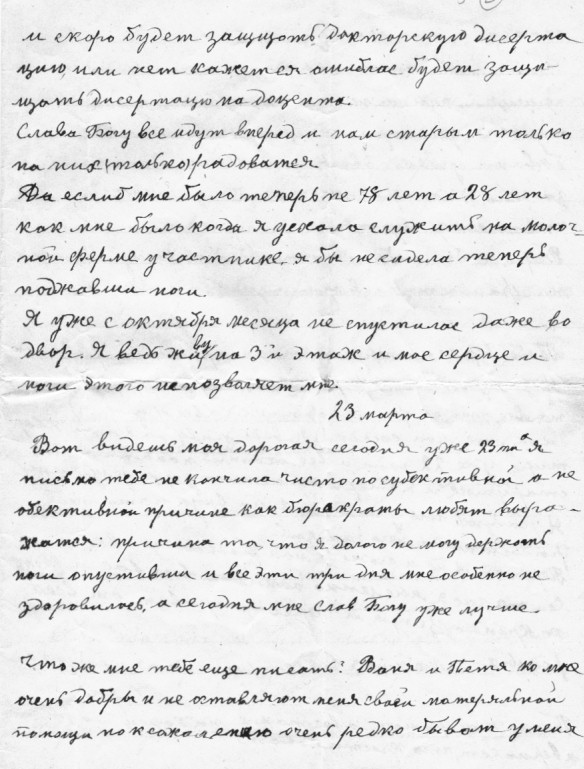 и скоро будет защищоть докторскую дисерта
цию, или нет кажется ошиблас будет защи-
щоть дисертацю на доцента.
Слава Богу все идут вперед и нам старым только
на них (только) радоватся
Да еслиб мне было теперь не 78 лет а 28 лет
как мне было когда я уехала служить на молоч-
ной ферме участнике, я бы не сидела теперь
поджавши ноги.
Я уже с октября месяца не спустилас даже во
двор. Я ведь живу на 3й этаж и мое сердце и
ноги этого непозволяет мне.
23 марта
Вот видешь моя дорогая сегодня уже 23 го а я
письмо тебе не кончила чисто по субективной а не
обективной причине как бюракраты любят выра-
жатся: причина та, что я долого не могу держать
ноги опустивши и все эти три дня мне особенно не
здоровилось, а сегодня мне слав Богу уже лучше.
Что же мне тебе еще писать? Ваня и Петя ко мне
очень добры и не оставляют меня своей матеряльной
помощи но ксожалению очень редко бывают у меня